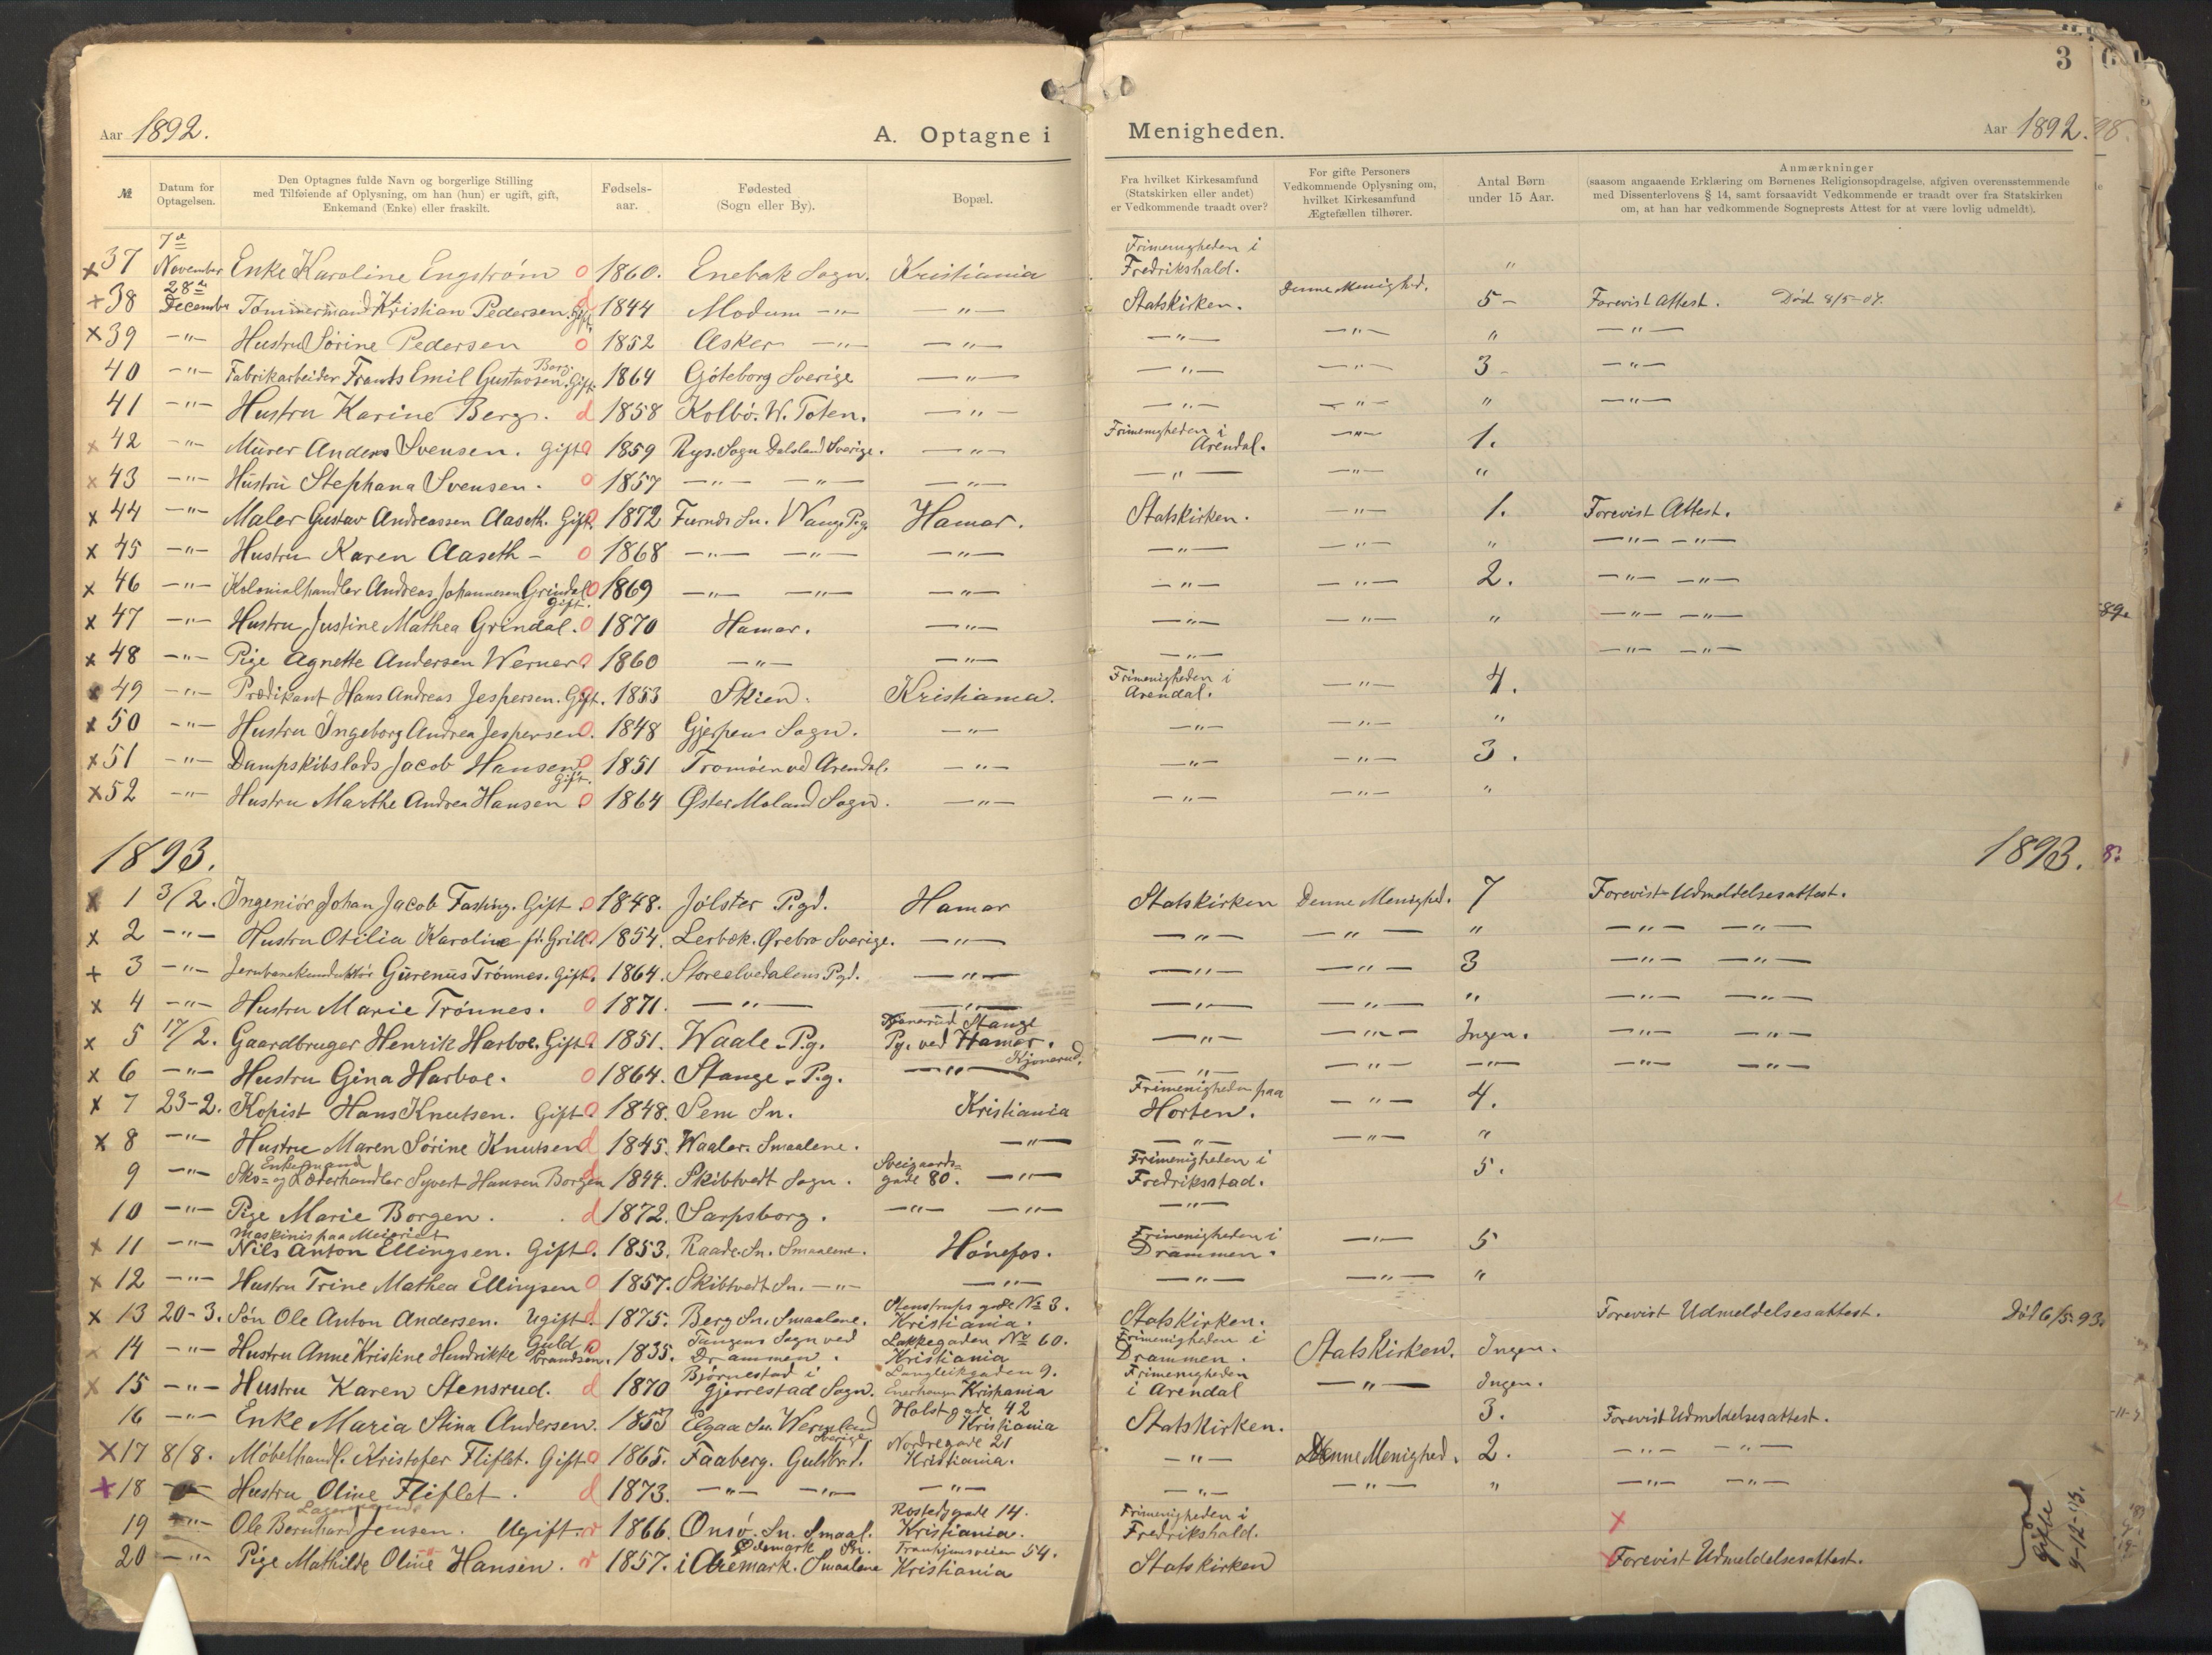 3
Aar 1892. A. Optagne i Menigheden. Aar 1892.
№ | Datum for Optagelsen. | Den Optagnes fulde Navn og borgerlige Stilling med Tilføiende af Oplysning, om han (hun) er ugift, gift, Enkemand (Enke) eller fraskilt. | Fødsels-aar. | Fødested (Sogn eller By). | Bopæl. | Fra hvilket Kirkesamfund (Statskirken eller andet) er Vedkommende traadt over? | For gifte Personers Vedkommende Oplysning om, hvilket Kirkesamfund Ægtefællen tilhører. | Antal Børn under 15 Aar. | Anmærkninger (saasom angaaende Erklæring om Børnenes Religionsopdragelse, afgiven overensstemmende med Dissenterlovens § 14, samt forsaavidt Vedkommende er traadt over fra Statskirken om, at han har vedkommende Sogneprests Attest for at være lovlig udmeldt).
x 37 7de November Enke Karoline Engstrøm o 1860. Enebak Sogn. Kristiania Frimenigheden i Fredrikshald. "
+ 38 28de December Tømmermand Kristian Pedersen. Gift d 1844 Modum —"— —"— Statskirken. Denne Menighed. 5 – Forevist Attest. Død 8/5-07.
x 39 —"— Hustru Sørine Pedersen o 1852 Asker —"— —"— —"— —"— " —"—
40 —"— Fabrikarbeider Frants Emil Gustavsen Berg. Gift. 1864 Gøteborg Sverige —"— —"— —"— 3 – —"—
41 —"— Hustru Karine Berg. d 1858 Kolbo. W. Toten. —"— —"— —"— " —"—
x 42 —"— Murer Anders Svensen. Gift o 1859 Rys. Sogn Dalsland Sverige. —"— Frimenigheden i Arendal. —"— 1.
x 43 —"— Hustru Stephana Svensen. o 1857 —"— —"— —"— —"— —"— "
x 44 —"— Maler Gustav Andreassen Aaseth. Gift o 1872 Furnds Sn. Wangs Pg. Hamar. Statskirken. —"— 1. Forevist Attest.
x 45 —"— Hustru Karen Aaseth – o 1868 —"— —"— —"— —"— —"— " —"— —"—
x 46 —"— Kolonialhandler Andreas Johannesen Grindal Gift. o 1869 —"— —"— —"— —"— —"— 2. —"— —"—
x 47 —"— Hustru Justine Mathea Grindal. o 1870 Hamar. —"— —"— —"— " —"— —"—
x 48 —"— Pige Agnette Andersen Werner o 1860 —"— —"— —"— —"— —"—
x 49 —"— Prædikant Hans Andreas Jespersen. Gift. 1853 Skien. Kristiania. Frimenigheden i Arendal. —"— 4.
x 50 —"— Hustru Ingeborg Andrea Jespersen o. 1848 Gjerpen Sogn. —"— —"— —"— "
x 51 —"— Dampskibslods Jacob Hansen Gift. o 1851 Tromøen ved Arendal. —"— —"— —"— 3.
x 52 —"— Hustru Marthe Andrea Hansen o 1864 Øster Moland Sogn. —"— —"— —"— "
1893. 1893.
x 1 3/2. Ingeniør Johan Jacob Fasting. Gift. o 1848. Jølster Pgd. Hamar Statskirken Denne Menighed. 7 Forevist Udmeldelsesattest.
x 2 —"— Hustru Otilia Karoline fd. Grill o 1854. Lerbæk. Ørebro Sverige. —"— —"— —"— " —"— —"—
+ 3 —"— Jernbanekonduktør Gurenus Trønnes. Gift o. 1864. Storeelvedalens Pgd. —"— —"— —"— 3 —"— —"—
x 4 —"— Hustru Marie Trønnes. o 1871. —"— —"— —"— —"— " —"— —"—
x 5 17/2. Gaardbruger Henrik Harboe. Gift o 1851. Waale – Pg. Stange Pg. ved Hamar. —"— —"— Ingen. —"— —"—
x 6 —"— Hustru Gina Harboe. o 1864. Stange – P.g. —"— Kjonerud. —"— —"— —"— —"— —"—
x 7 23-2. Kopist Hans Knutsen. Gift o. 1848. Sem Sn. Kristiania Frimenigheden paa Horten. —"— 4.
x 8 —"— Hustru Maren Sørine Knutsen d 1845. Waaler. Smaalene. —"— —"— —"— "
9 —"— Enkemand Sko- og Læderhandler Syvert Hansen Borgen d 1844. Skibtvedt Sogn. Sveigaards-gade 80. —"— Frimenigheden i Fredriksstad. 5.
10 —"— Pige Marie Borgen. d 1872. Sarpsborg. —"— —"— —"—
x 11 —"— Maskinist paa Meieriet Nils Anton Ellingsen. Gift o. 1853. Raade. Sn. Smaalene. Hønefos. Frimenigheden i Drammen. —"— 5
x 12 —"— Hustru Trine Mathea Ellingsen o 1857. Skibtvedt Sn. —"— —"— —"— —"— "
x 13 20-3. Søn Ole Anton Andersen. Ugift d. 1875. Berg Sn. Smaalene. Stenstrups gade № 3. Kristiania. Statskirken. Forevist Udmeldelsesattest. Død 6/5 93.
x 14 —"— Hustru Anne Kristine Hendrikke Guldbrandsen. o 1835. Tangens Sogn ved Drammen. Lakkegaden № 60. Kristiania Frimenigheden i Drammen. Statskirken. Ingen.
x 15 —"— Hustru Karen Stensrud. d 1870 Bjørnestad i Gjerrestad Sogn. Langleikgaden 9. Enerhaugen Kristiania Frimenigheden i Arendal —"— Ingen.
16 —"— Enke Maria Stina Andersen. 1853 Elgaa Sn Wermland Sverige Holstgade 42 Kristiania Statskirken. 3. Forevist Udmeldelsesattest.
x 17 8/8. Møbelhandl. Kristofer Fliflet. Gift o 1865. Faaberg. Guldbr.d. Nordregade 21 Kristiania. —"— Denne Menighed. 2. —"— —"—
x 18 —"— Hustru Oline Fliflet. d 1873. —"— —"— —"— —"— —"— " —"— —"—
19 —"— Ole Bernhard Jensen. Ugift. r 1866. Onsø. Sn. Smaal. Rostedsgade 14. Kristiania. Frimenigheden i Fredrikshald. x
20 —"— Pige Mathilde Oline Hansen. r 1857. Ødemark Sn. i Aremark. Smaalene Tronhjemsveien 54. Kristiania Statskirken Forevist Udmeldelsesattest.
gifte 9-12-93.